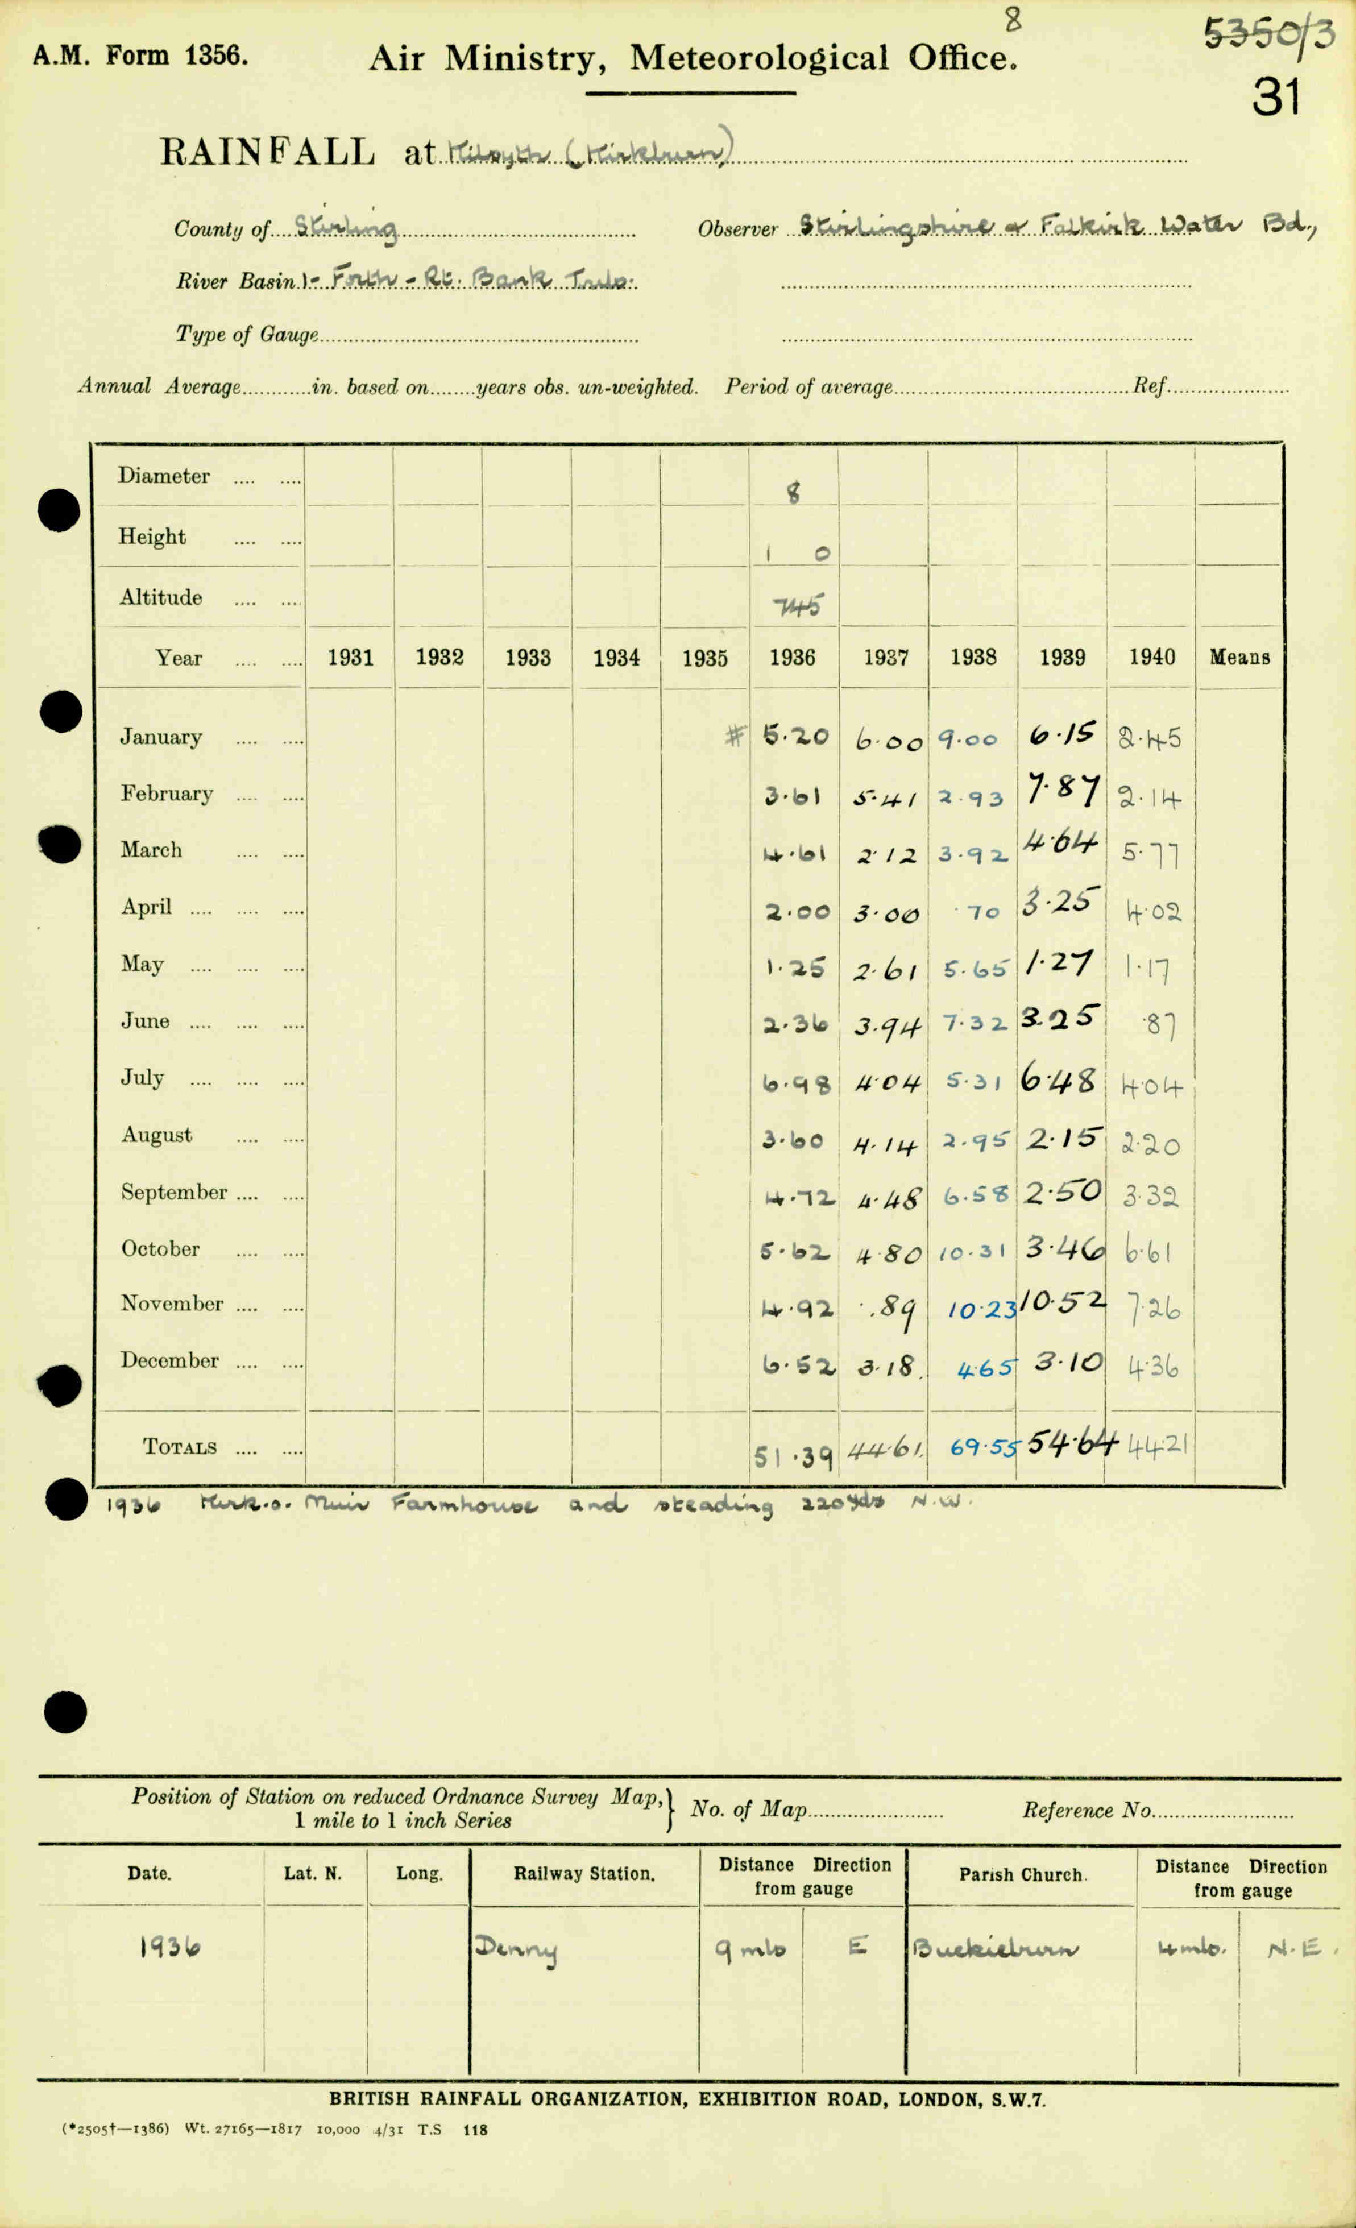 8
5350/3
A.M. Form 1356. Air Ministry, Meteorological Office.
31
RAINFALL at Kilsyth (Kirkburn)
County of Stirling Observer Stirlingshire & Falkirk Water Bd.,
River Basin 1- Forth - Rt. Bank Tribs.
Type of Gauge
Annual Average in. based on years obs. un-weighted. Period of average Ref.
Diameter .... .... 8
Height .... .... 1 0
Altitude .... .... 745
Year .... .... 1931 1932 1933 1934 1935 1936 1937 1938 1939 1940 Means
January .... .... # 5.20 6.00 9.00 6.15 2.45
February .... .... 3.61 5.41 2.93 7.87 2.14
March .... .... 4.61 2.12 3.92 4.64 5.77
April .... .... .... 2.00 3.00 .70 3.25 4.02
May .... .... .... 1.25 2.61 5.65 1.27 1.17
June .... .... .... 2.36 3.94 7.32 3.25 .87
July .... .... .... 6.98 4.04 5.31 6.48 4.04
August .... .... 3.60 4.14 2.95 2.15 2.20
September .... .... 4.72 4.48 6.58 2.50 3.32
October .... .... 5.62 4.80 10.31 3.46 6.61
November .... .... 4.92 .89 10.23 10.52 7.26
December .... .... 6.52 3.18 4.65 3.10 4.36
TOTALS .... .... 51.39 44.61 69.55 54.64 44.21
1936 Kirk-o-Muir Farmhouse and steading 220 yds N.W.
Position of Station on reduced Ordnance Survey Map, 1 mile to 1 inch Series } No. of Map Reference No.
Date. Lat. N. Long. Railway Station. Distance Direction from gauge Parish Church. Distance Direction from gauge
1936 Denny 9 mls E Buckieburn 4 mls. N.E.
BRITISH RAINFALL ORGANIZATION, EXHIBITION ROAD, LONDON, S.W.7.
(*2505†—1386) Wt. 27165—1817 10,000 4/31 T.S 118